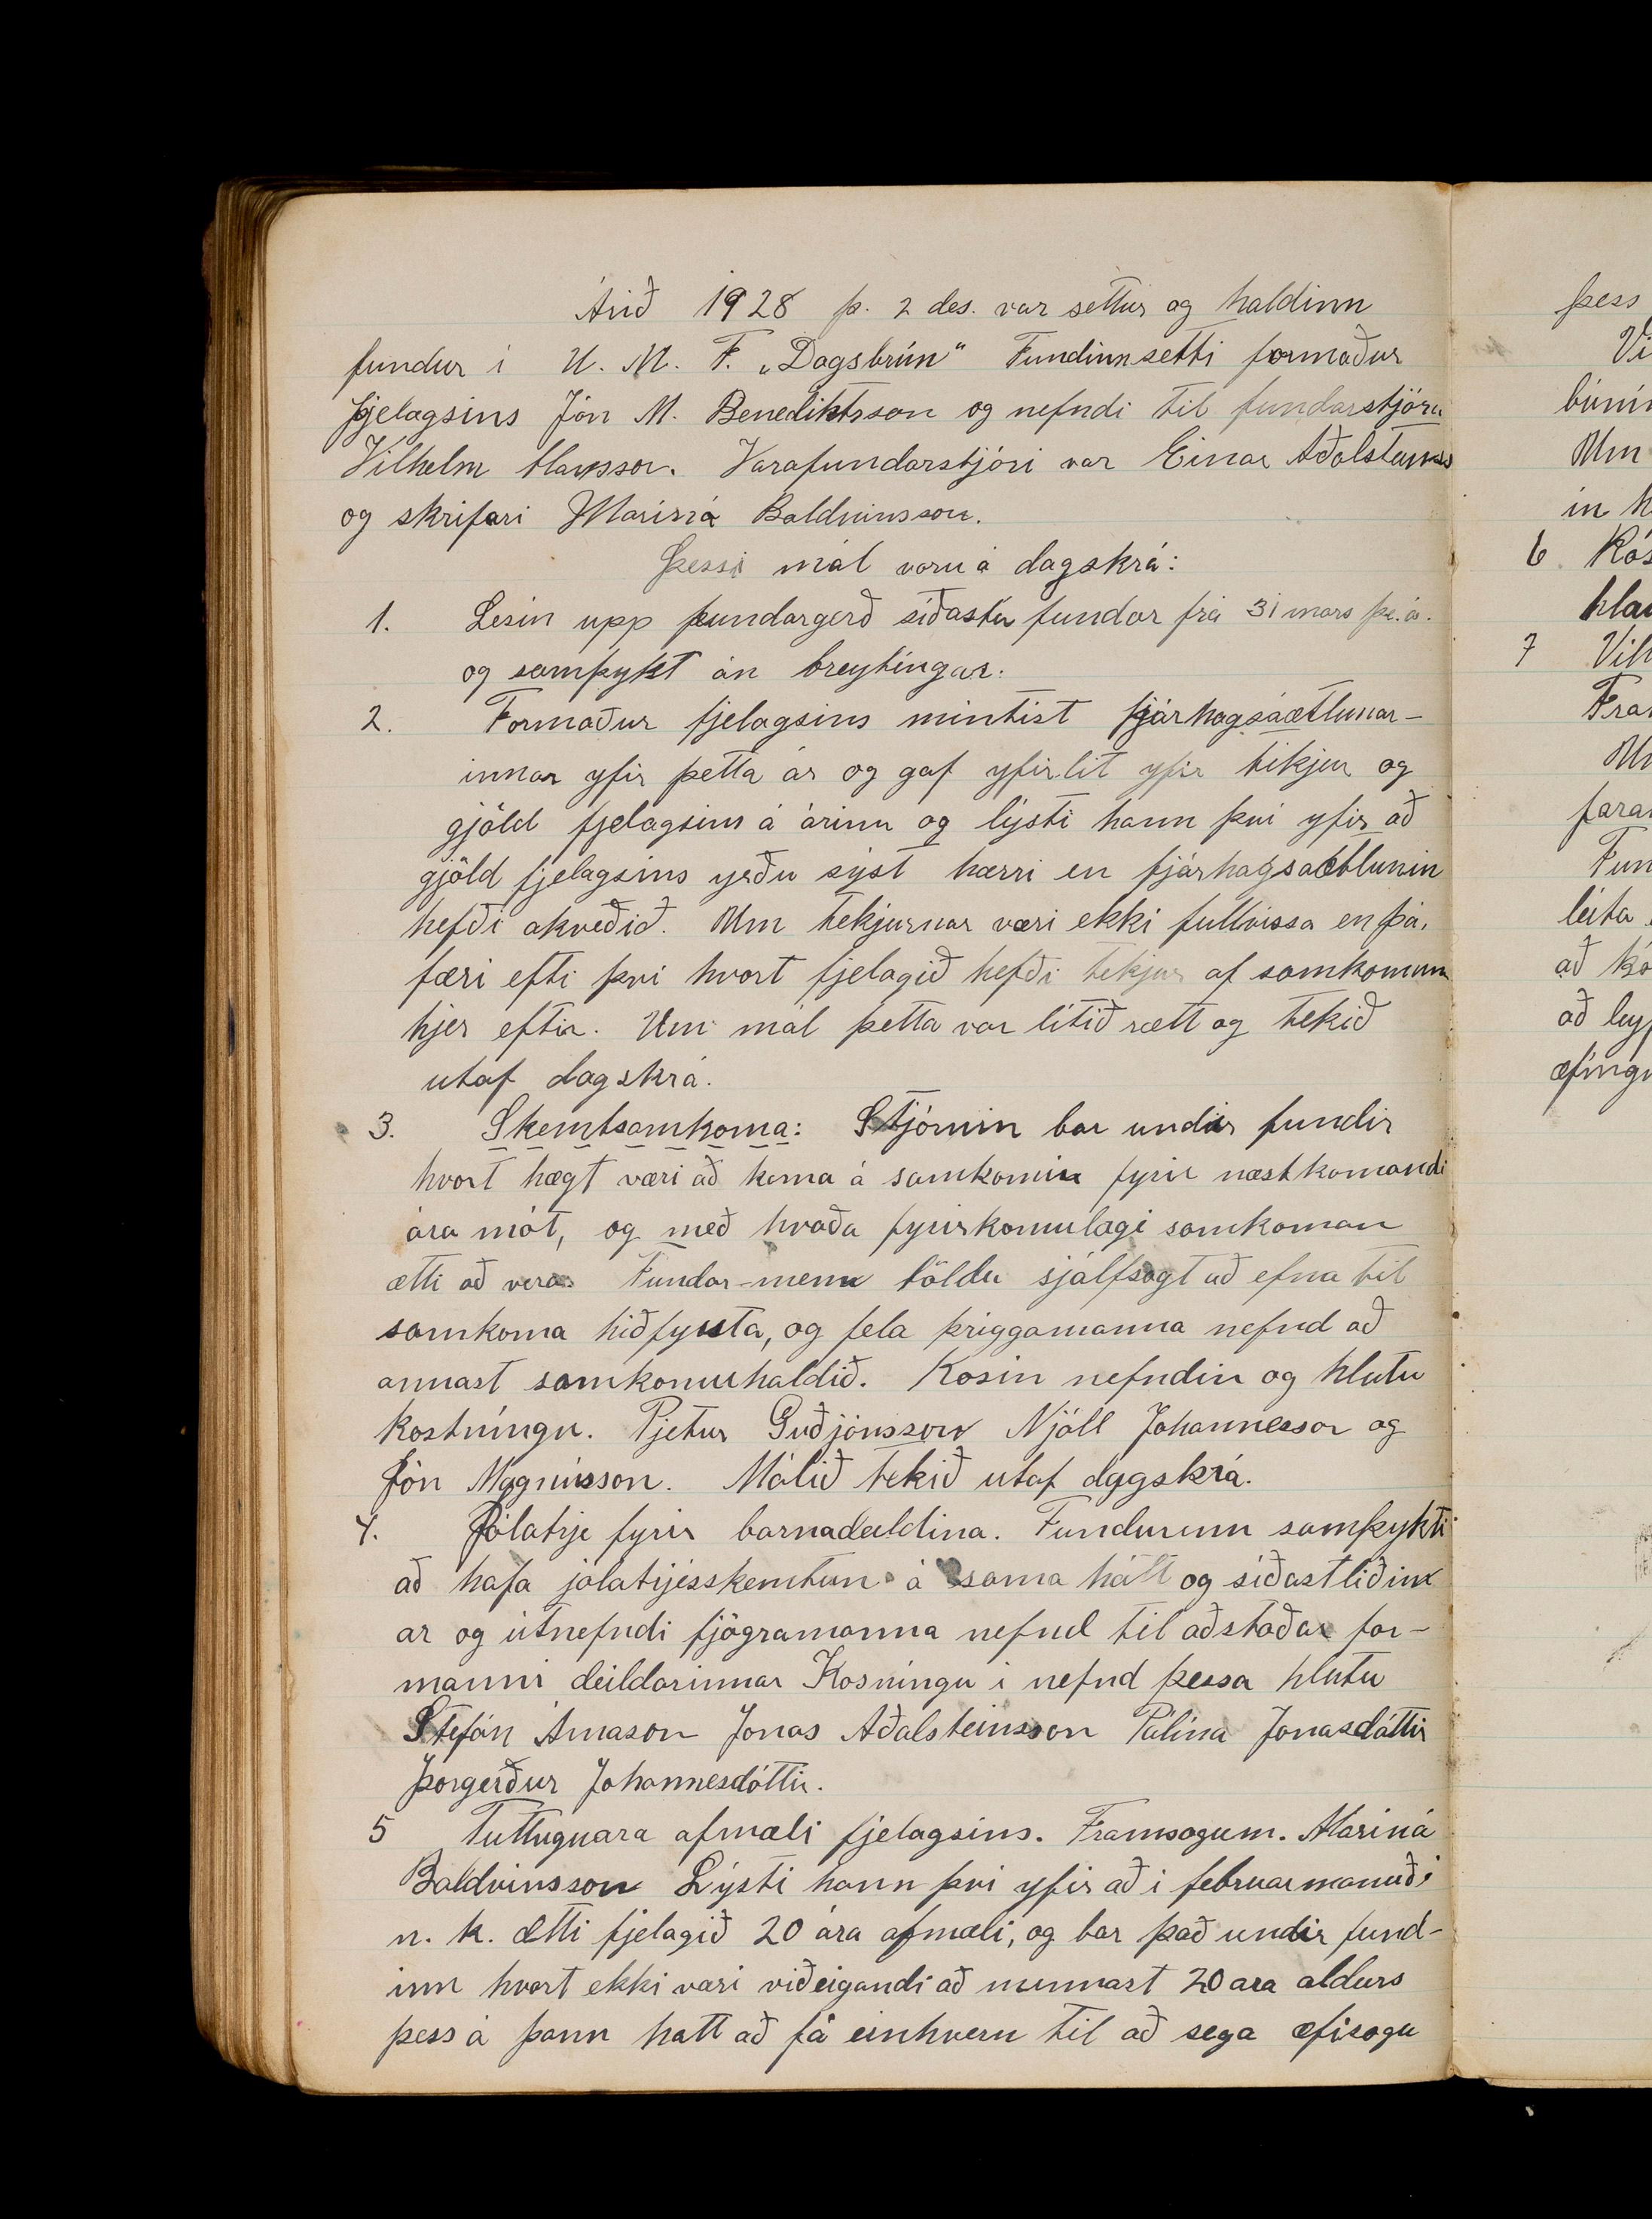 Árið 1928 þ. 2 des. var settur og haldinn
fundur i U. M. F. „Dagsbrún“ Fundinn setti formaður
fjelagsins Jón M. Benediktsson og nefndi til fundarstjóra
Vilhelm Hansson. Varafundarstjóri var Einar Aðalsteinss
og skrifari Marinó Baldvinsson.
Þessi mál voru á dagskrá:
1. Lesin upp fundargerð síðasta fundar frá 31 mars þ.á.
og samþykt án breytingar.
2. Formaður fjelagsins mintist fjárhagsáætlunar-
innar yfir þetta ár og gaf yfirlit yfir tekjur og
gjöld fjelagsins á árinu og lýsti hann því yfir að
gjöld fjelagsins yrðu sýst hærri en fjárhagsaætlunin
hefði akveðið. Um tekjurnar væri ekki fullvissa en þá,
færi efti því hvort fjelagið hefði tekjur af samkomum
hjer eftir. Um mál þetta var lítið rætt og tekið
utaf dagskrá.
3. Skemtsamkoma: Stjórnin bar undir fundir
hvort hægt væri að koma á samkomu fyrir næstkomandi
ára mót, og með hvaða fyrirkomulagi samkoman
ætti að vera. Fundar-menn töldu sjálfsagt að efna til
samkoma hið fyrsta, og fela þriggamanna nefnd að
annast samkomuhaldið. Kosin nefndin og hlutu
kostníngu. Pjetur Guðjónsson Njáll Johannesson og
Jón Magnússon. Málið tekið utaf dagskrá.
4. Jólatrje fyrir barnadeildina. Fundurinn samþykti
að hafa jólatrjésskemtun á sama hátt og síðastliðinn
ar og útnefndi fjögramanna nefnd til aðstoðar for-
manni deildarinnar Kosníngu i nefnd þessa hlutu
Stefán Árnason Jonas Aðalsteinsson Pálína Jonasdóttir
Þorgerður Johannesdóttir.
5 Tuttuguara afmæli fjelagsins. Framsögum. Marinó
Baldvinsson Lýsti hann því yfir að i februarmanuði
n. k. ætti fjelagið 20 ára afmæli, og bar það undir fund-
inn hvort ekki væri viðeigandi að minnast 20 ara aldurs
þess á þann hatt að fá einhvern til að sega æfisogu
þess
Vi
búni
Um
in h
6 Rós
hla
7 Vilh
Fra
Um
fara
Fun
leita
að ko
að ley
æfíngu